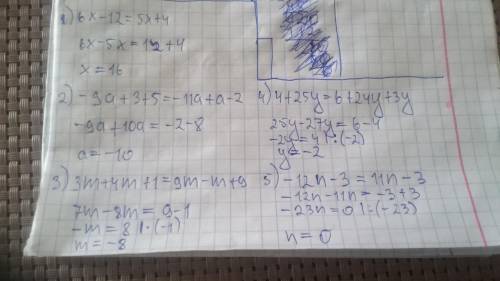 1) 6x-12=5x+4
6x-5x=12+4
x=16
2) -9a+3+5=-11a+a-2
-9a+10a=-2-8
a=-10
3) 3m+4m+1=9m-m+9
7m-8m=9-1
-m=8 |·(-1)
m=-8
4) 4+25y=6+24y+3y
25y-27y=6-4
-2y=4 |:(-2)
y=-2
5) -12n-3=11n-3
-12n-11n=-3+3
-23n=0 |:(-23)
n=0